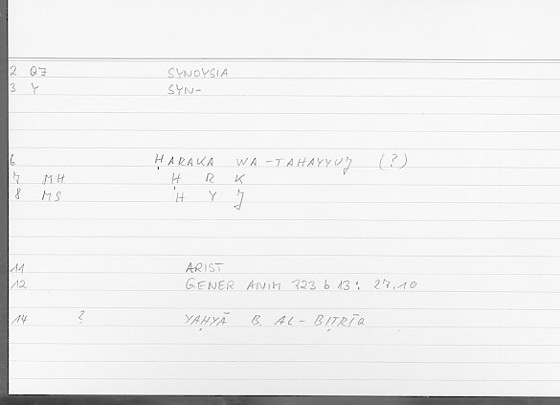 2 Q7 SYNOYSIA
3 Y SYN-
6 ḤARAKA WA-TAHAYYUJ (?)
7 MH Ḥ R K
8 MS H Y J
11 ARIST
12 GENER ANIM 723 b 13: 27.10
14 ? YAḤYĀ B. AL-BIṬRĪQ